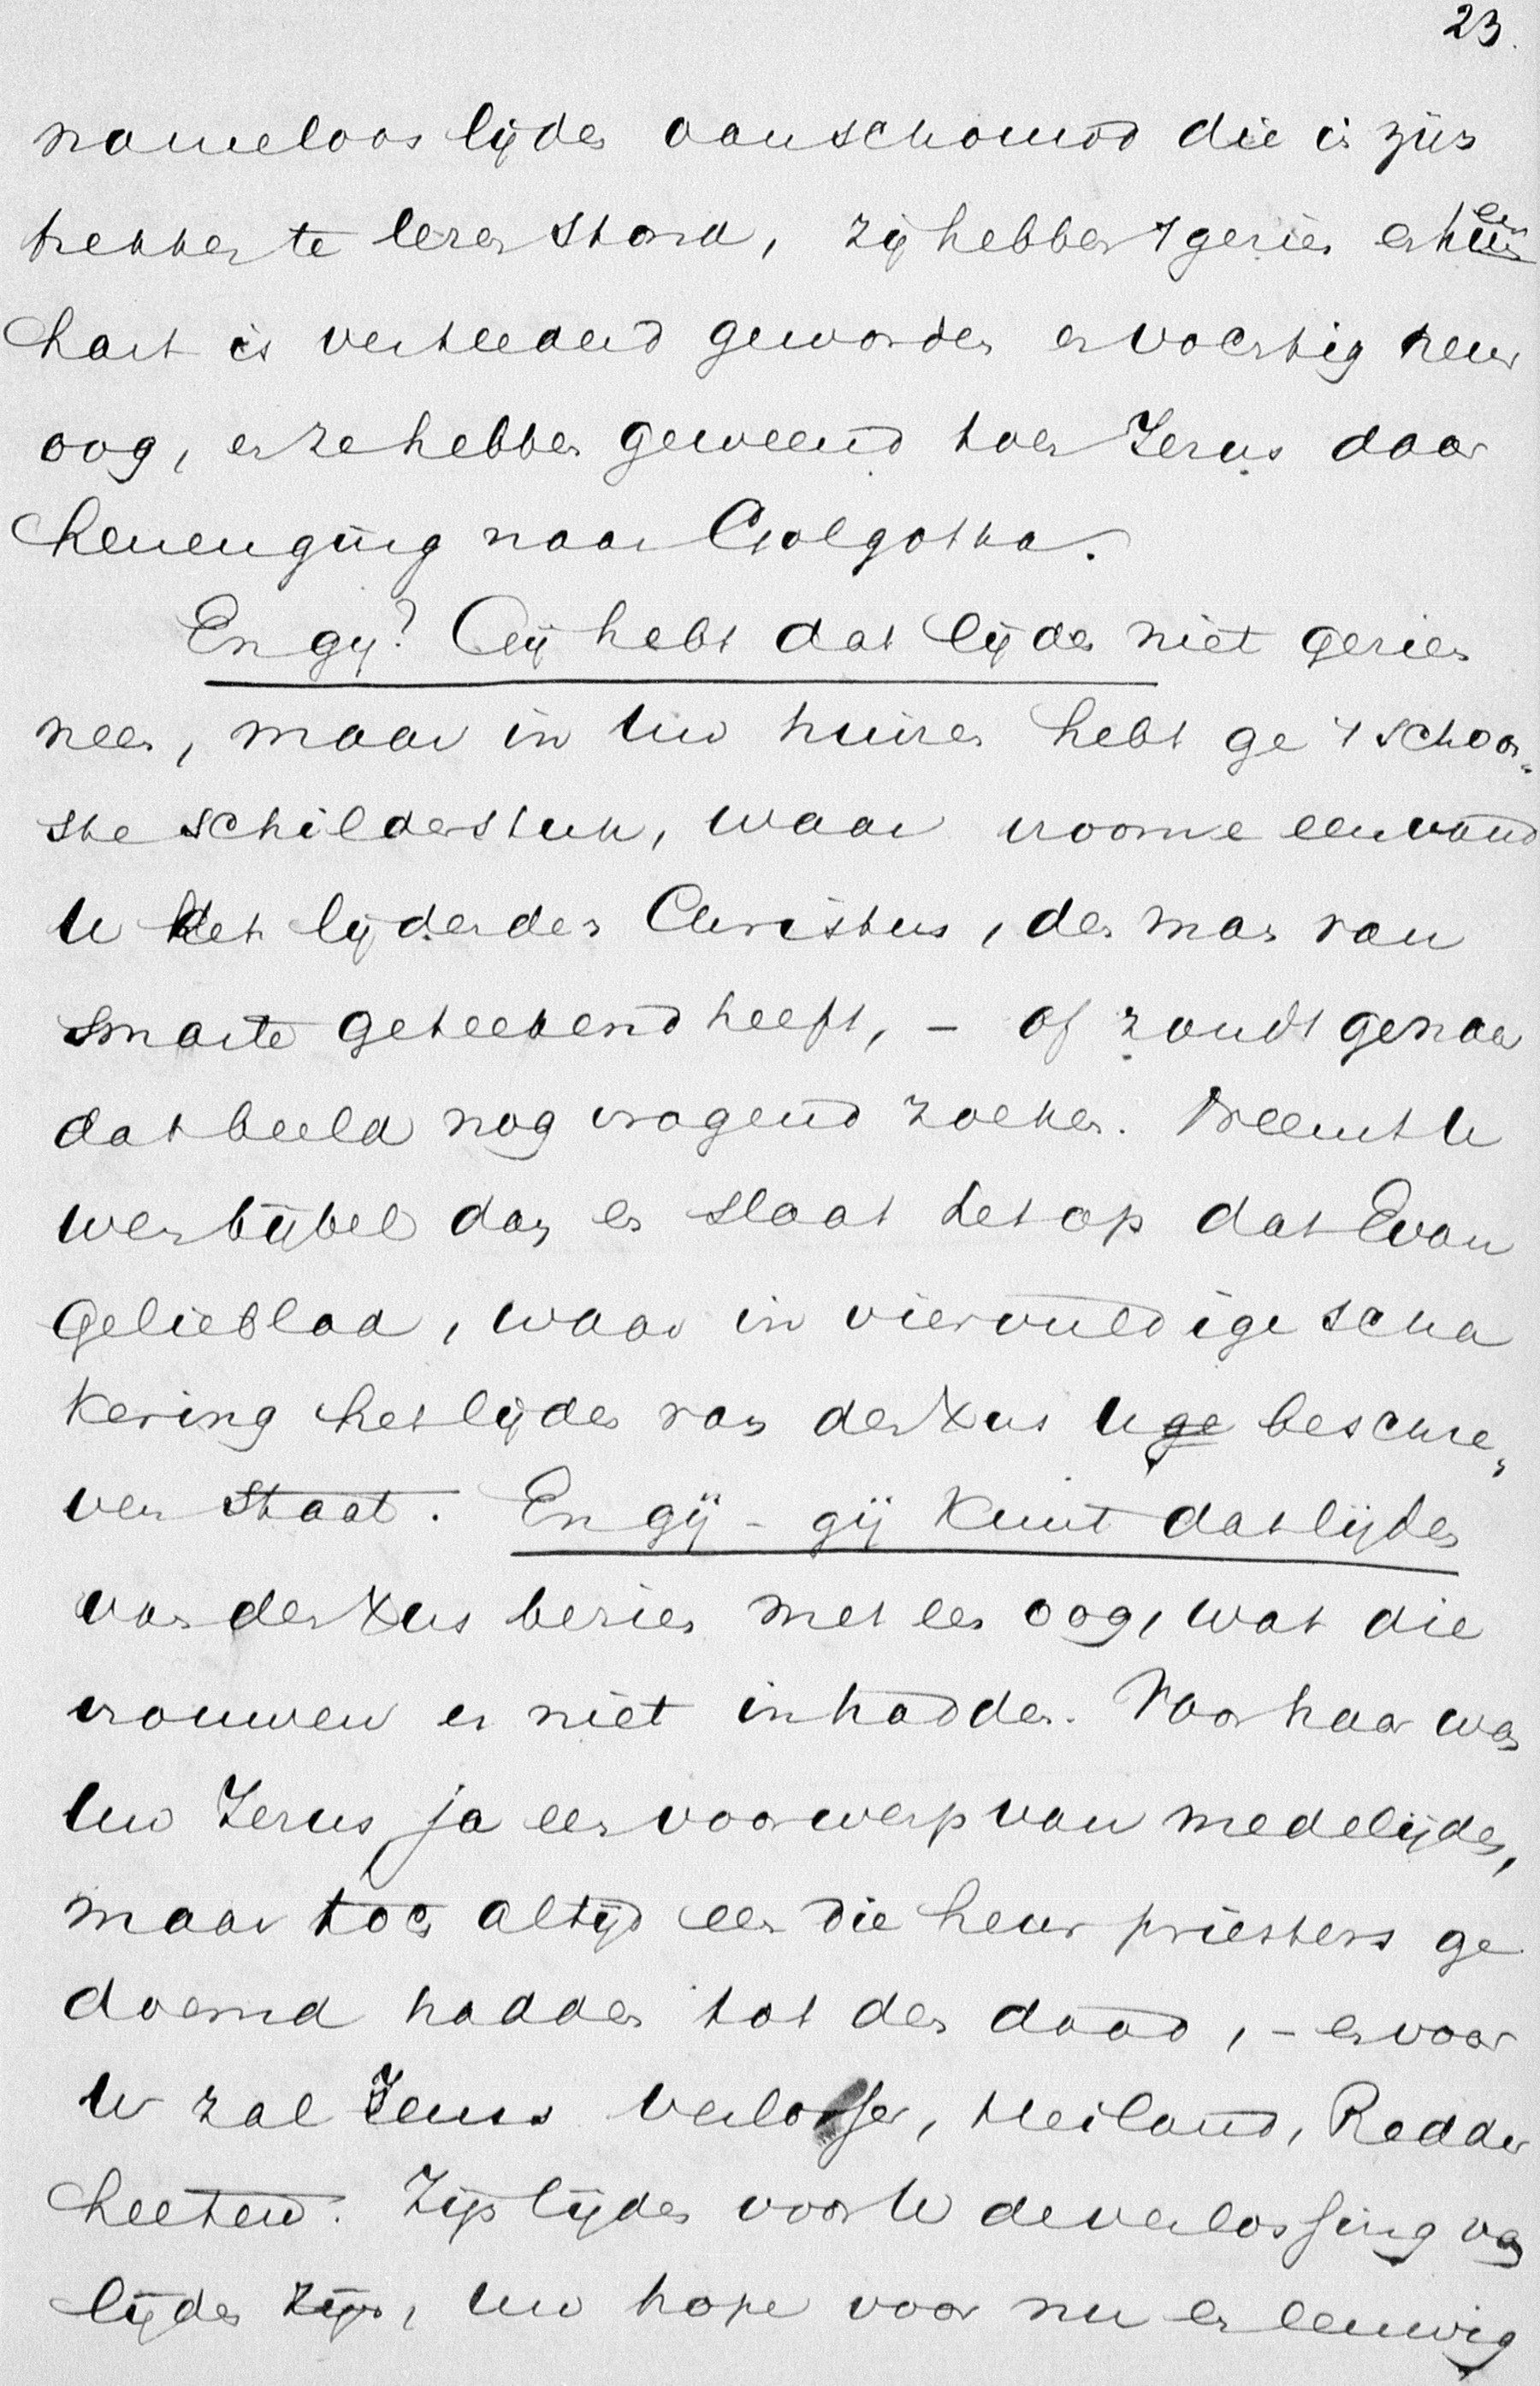 23.
nameloos lijden aanschouwd die in zijn
trekken te lezen stond, zij hebben 't gezien en heur
hart is verteederd geworden en vochtig heur
oog, en ze hebben geweend toen Jezus daar
henenging naar Golgotha.
En gij? Gij hebt dat lijden niet gezien
neen, maar in uw huizen hebt ge 't schoon„
ste schilderstuk, waar vroome eenvoud
U den lijdenden Christus, den man van
smarte geteekend heeft, – of zoudt ge naar
dat beeld nog vragend zoeken. Neemt U
uwen bijbel dan en slaat het op dat Evan
gelieblad, waar in viervuldige scha
kering het lijden van den Xus U ge beschre„
ven staat. En gij – gij kunt dat lijden
van den Xus bezien met een oog, wat die
vrouwen er niet in hadden. Voor haar was
uw Jezus ja een voorwerp van medelijden,
maar toch altijd een die heur priesters ge
doemd hadden tot den dood, – en voor
U zal Jezus Verlosser, Heiland, Redder
heeten. Zijn lijden voor U de verlossing van
lijden zijn, uw hope voor nu en eeuwig